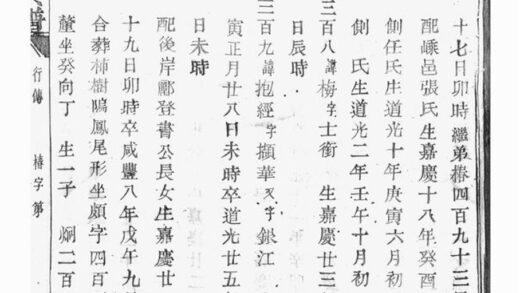 十七日卯時繼弟椿四百九十三
配嵊邑張氏生嘉慶十八年癸酉
側任氏生道光十年庚寅六月初
側 氏生道光二年壬午十月初
三百八諱梅字士衡 生嘉慶廿三
日辰時
三百九諱抱經字擷華又字銀江
寅正月廿八日未時卒道光廿五
日未時
配後岸酈登書公長女生嘉慶廿
十九日卯時卒咸豐八年戊午九
合葬柿樹隝鳳尾形坐頗字四百
釐坐癸向丁 生一子 炯二百
行傳 椿字第